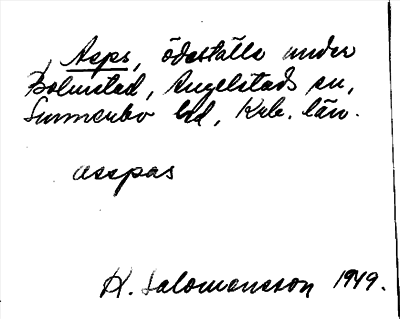 Asps, ödeställe under
Bolmstad, Angelstads sn,
Sunnerbo hd, Krb. län.
asspas
K. Salomonsson 1949.